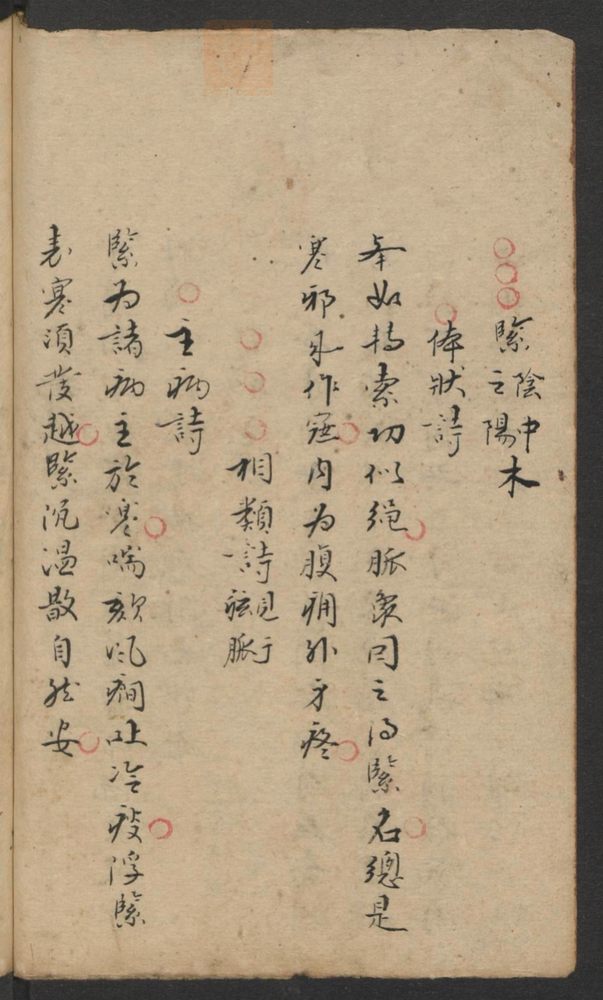 緊 陰中之陽 木
体狀詩
舉如轉索切似繩脈象因之得緊名總是
寒邪來作寇內为腹痛外身疼
相類詩 見于弦脈
主病詩
緊为諸病主於寒喘欬风癇吐冷痰浮緊
表寒須發越緊沉温散自然安